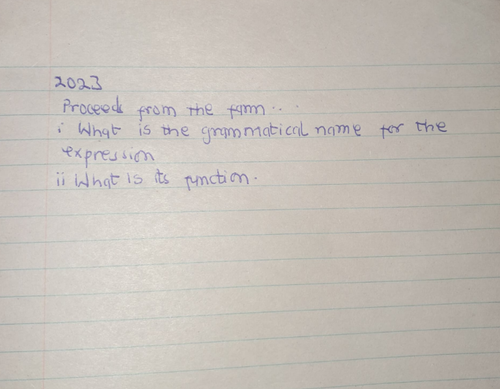 2023
Proceeds from the farm...
i What is the grammatical name for the
expression
ii What is its function.